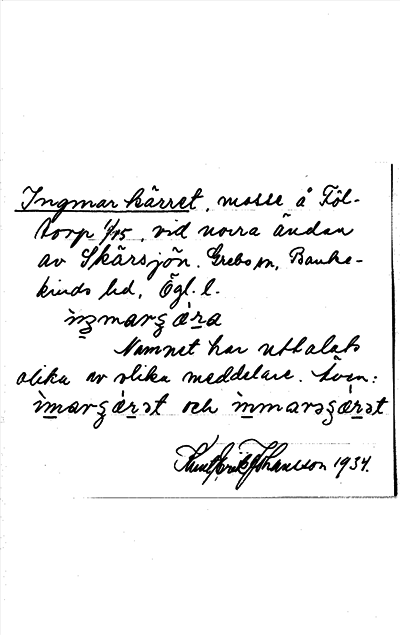 Ingmar kärret, mosse å Föl-
torp 1/15, vid norra ändan
av Skärsjön. Grebo sn, Banke-
kinds hd, Ögl. l.
Namnet har uttalats
olika av olika meddelare. Även:
och
Knut Erik Johansson 1934.